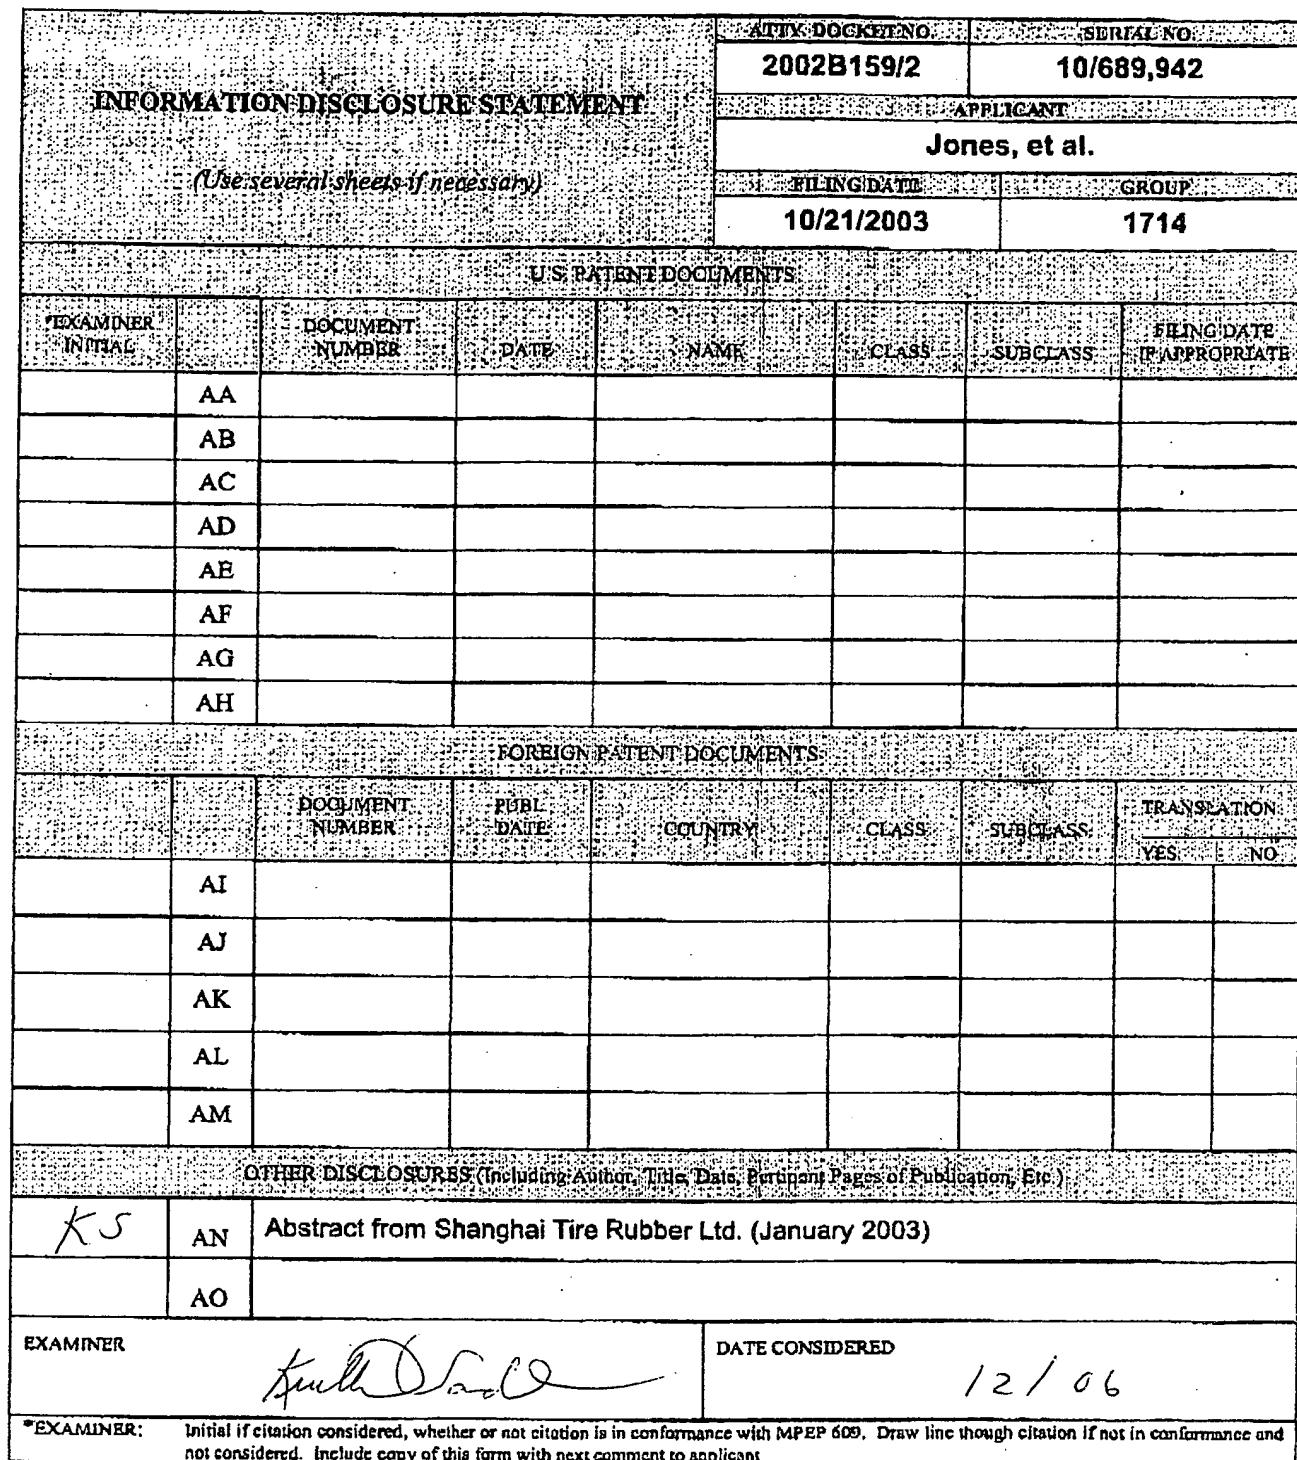 ATTY. DOCKET NO. SERIAL NO.
2002B159/2 10/689,942
INFORMATION DISCLOSURE STATEMENT
APPLICANT
Jones, et al.
(Use several sheets if necessary)
FILING DATE GROUP
10/21/2003 1714
U.S. PATENT DOCUMENTS
*EXAMINER INITIAL DOCUMENT NUMBER DATE NAME CLASS SUBCLASS FILING DATE IF APPROPRIATE
AA
AB
AC
AD
AE
AF
AG
AH
FOREIGN PATENT DOCUMENTS
DOCUMENT NUMBER PUBL. DATE COUNTRY CLASS SUBCLASS TRANSLATION
YES NO
AI
AJ
AK
AL
AM
OTHER DISCLOSURES (Including Author, Title, Date, Pertinent Pages of Publication, Etc.)
KS AN Abstract from Shanghai Tire Rubber Ltd. (January 2003)
AO
EXAMINER DATE CONSIDERED
12/06
*EXAMINER: Initial if citation considered, whether or not citation is in conformance with MPEP 609. Draw line though citation if not in conformance and
not considered. Include copy of this form with next comment to applicant